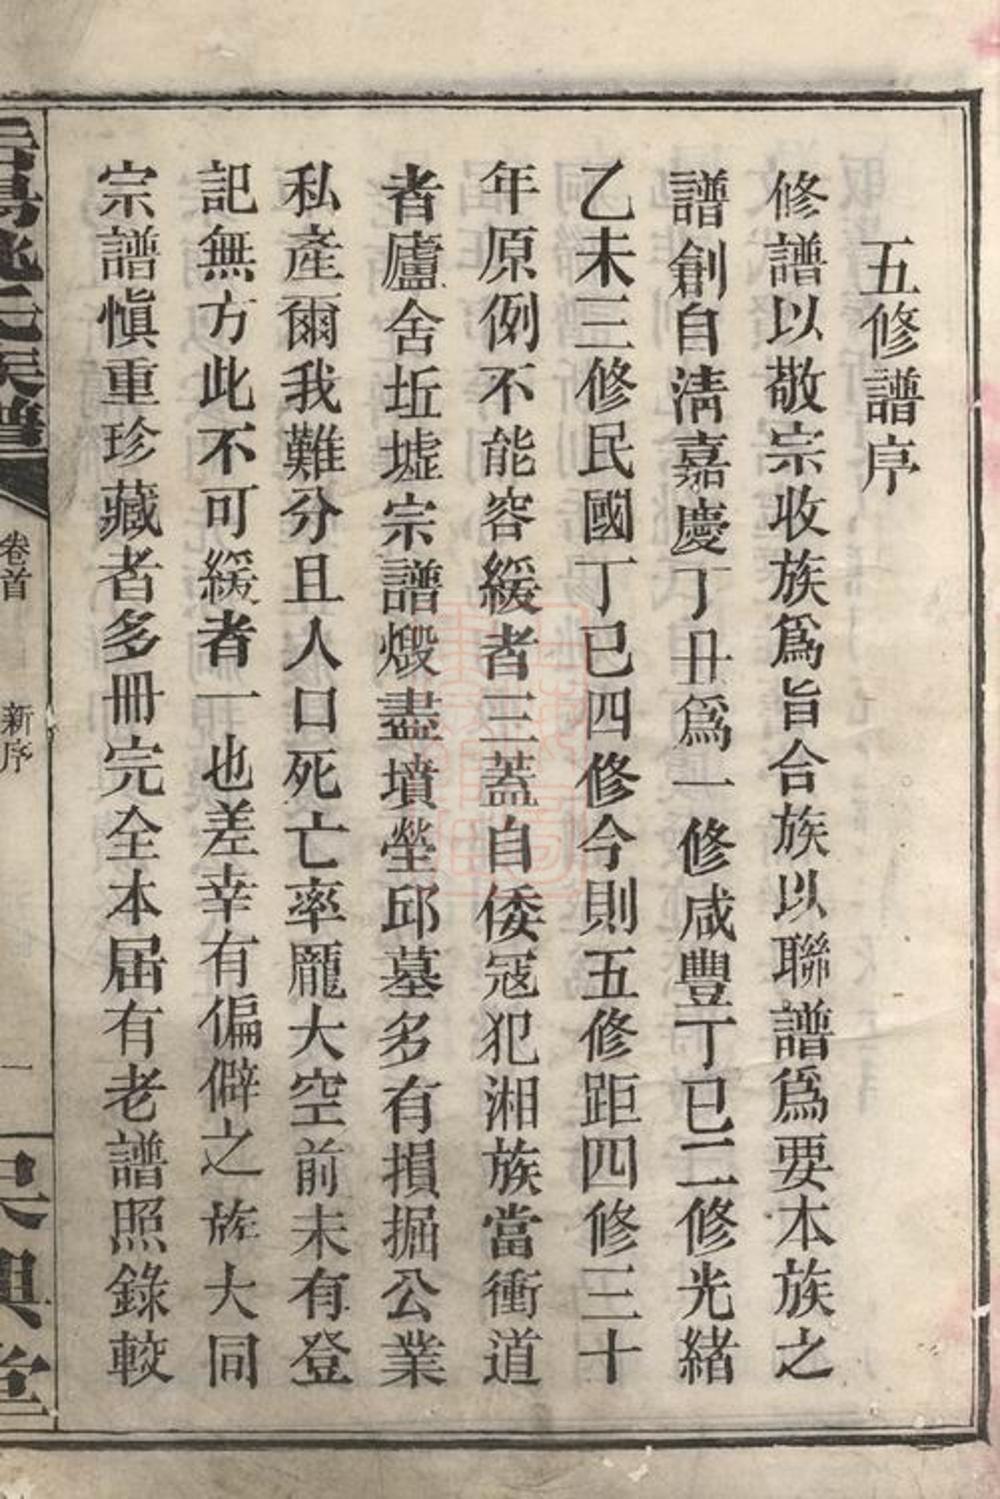 五修譜序
修譜以敬宗收族爲旨合族以聯譜爲要本族之
譜創自淸嘉慶丁丑爲一修咸豐丁巳二修光緖
乙未三修民國丁巳四修今則五修距四修三十
年原例不能容緩者三蓋自倭寇犯湘族當衝道
者廬舍坵墟宗譜燬盡墳塋邱墓多有損掘公業
私產爾我難分且人口死亡率龎大空前未有登
記無方此不可緩者一也差幸有偏僻之族大同
宗譜愼重珍藏者多冊完全本届有老譜照錄較
姚氏族譜
卷首
新序
一
吳興堂